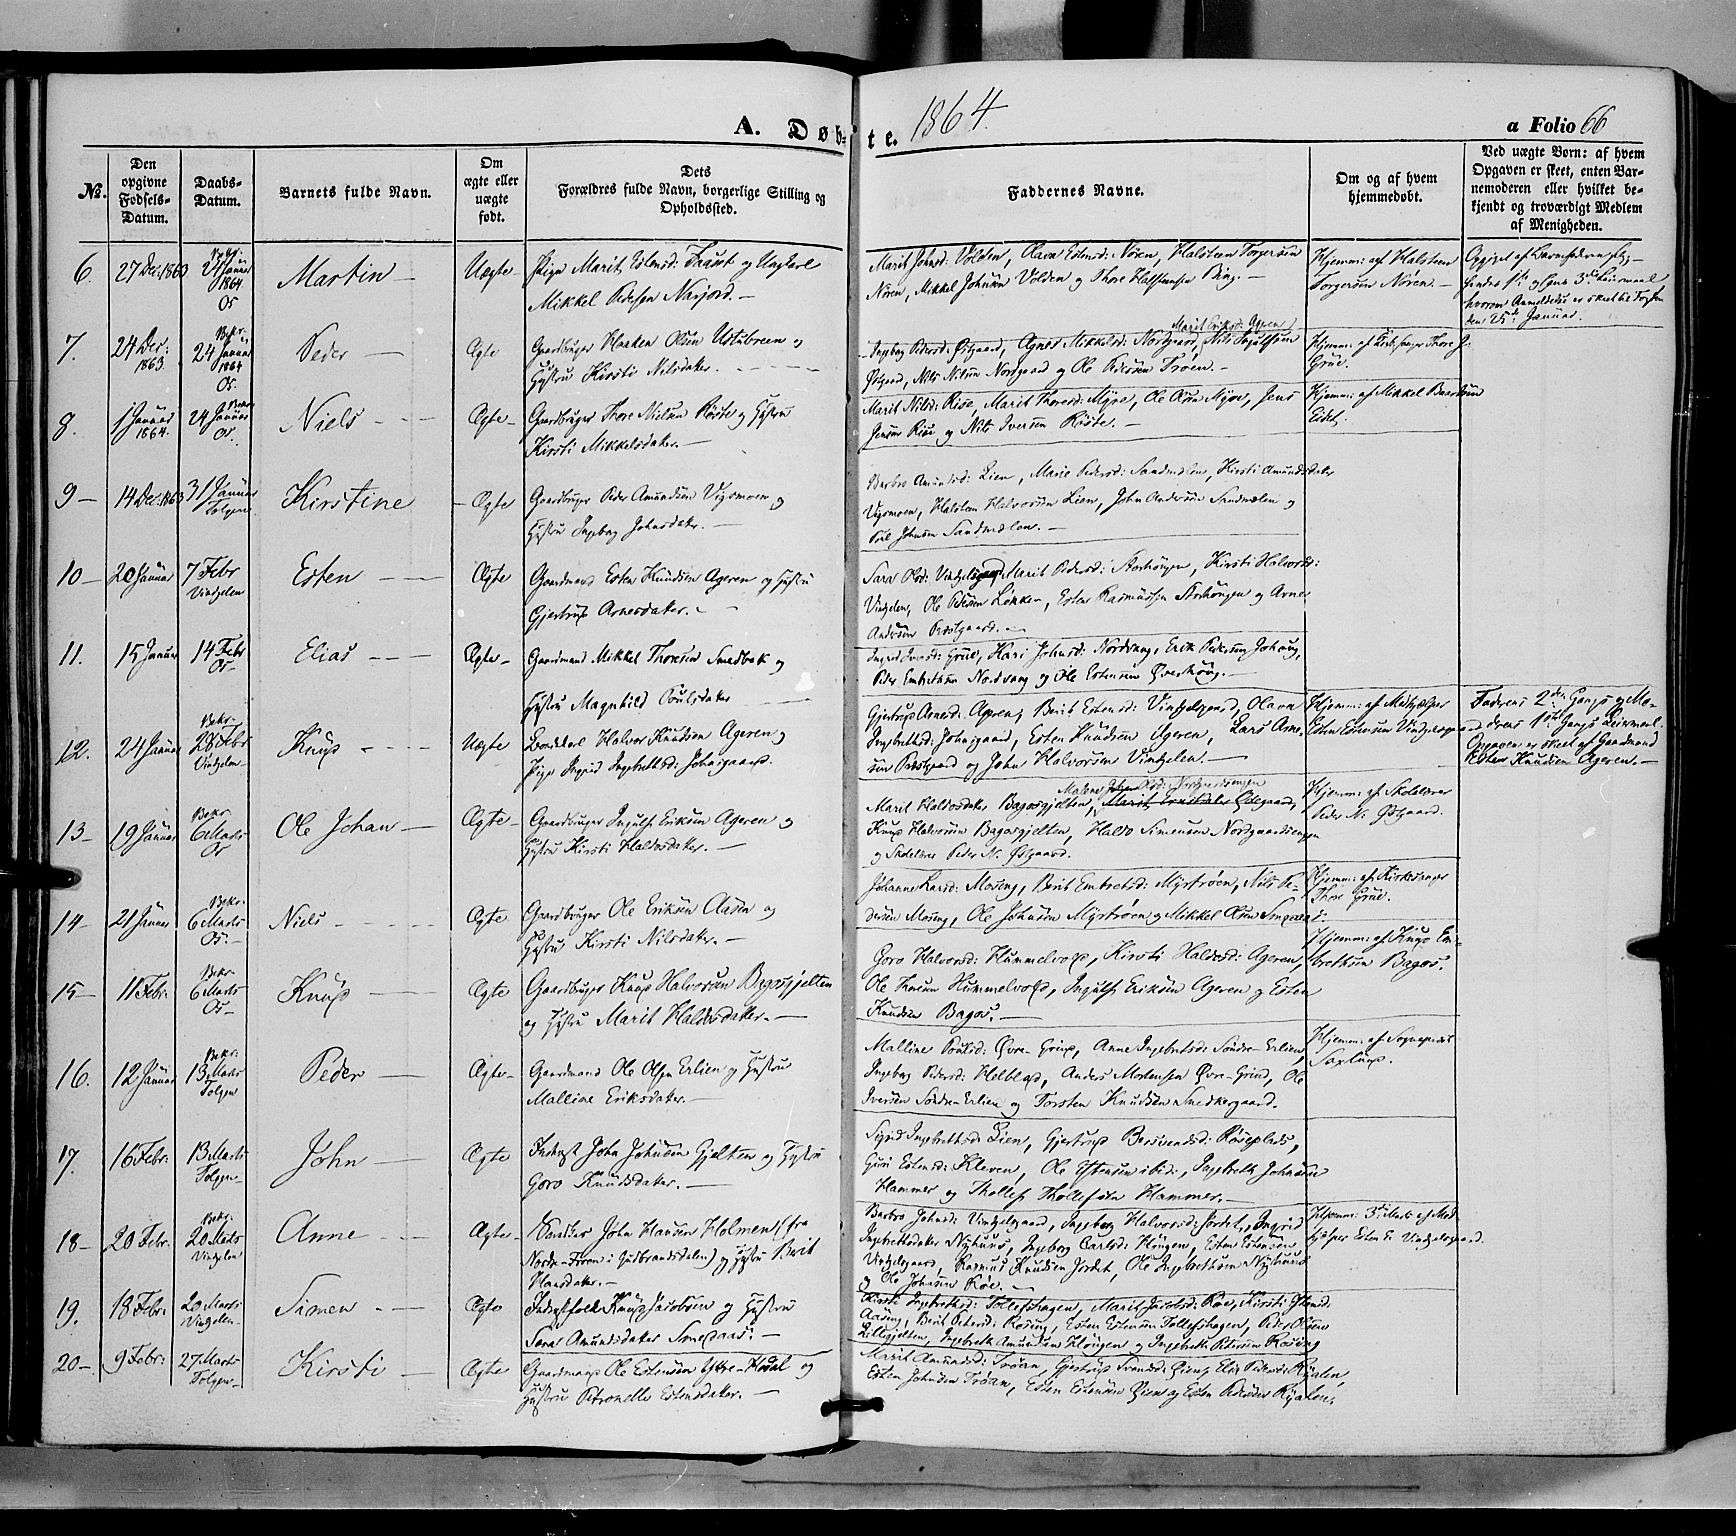 A. Døb-te. 1864.
a Folio 66
No.
Den opgivne Fødsels-Datum.
Daabs-Datum.
Barnets fulde Navn.
Om ægte eller uægte født.
Dets Forældres fulde Navn, borgerlige Stilling og Opholdssted.
Faddernes Navne.
Om og af hvem hjemmedøbt.
Ved uægte Børn: af hvem Opgaven er skeet, enten Barnemoderen eller hvilket bekjendt og troværdigt Medlem af Menigheden.
6. 27 Dec: 1863 Januar 1864 Os Martin Uægte Pige Marit Estensd: og Ungkarl
Mikkel Pedersen Narjord.
Marit Johnsd: Volden, Olava Estensd: Nøren, Halsten Torgersen
Nøren, Mikkel Johnsen Volden og Thore Halstensen Bing.
Hjemm: af Halsten
Torgersen Nøren.
7. 24 Dec: 1863. Bekr. 24 Januar 1864 Os. Peder Ægte Gaardbruger Haaken Olsen og
Hustru Kirsti Nilsdater.
Marit Eriksd: Ageren
Ingeborg Pedersd: Østgaard, Agnes Mikkelsd: Nordgaard, Nils Ingulfsen
Østgaard, Nils Nilsen Nordgaard og Ole Pedersen Trøen.
Hjemm: af Kirkesanger Thore J.
Grue.
8. 1 Januar 1864. 24 Januar Bekr. Os. Niels Ægte Gaardbruger Thore Nielsen Røste og Hustru
Kirsti Mikkelsdater.
Marit Nilsd: Risse, Marit Thoresd: Myre, Ole Olsen Myre, Jens
Jensen Risse og Nils Iversen Røste.
Hjemm: af Mikkel
Eidet.
9 14 Dec: 1863 31 Januar Tolgen Kirstine Ægte Gaardbruger Peder Amundsen Vigsmoen og
Hustru Ingeborg Johnsdater.
Barbro Amundsd: Lien, Marie Pedersd: Sandmælen, Kirsti Amundsdater
Vigsmoen, Halsten Halvorsen Lien, John Andersen Sandmælen og
Poul Johnsen Sandmælen.
10 20 Januar 7 Febr Vindgelen Esten Ægte Gaardmand Esten Knudsen Ageren og Hustru
Gjertrud Arnesdater.
Sara Olsd: Vindgelsgaard, Marit Pedersd: Storhøugen, Kirsti Halvorsd:
Vingelen, Ole Pedersen Løkken, Esten Rasmussen Storhøugen og Arne
Andersen Præstgaard.
11. 15 Januar 14 Febr Os Elias Ægte Gaardmand Mikkel Thoresen Smedbak og
Hustru Magnhild Poulsdater
Ingrid Iversd: Grue, Kari Johnsd: Nordvang, Erik Pedersen Johaug,
Peder Embretsen Nordvang og Ole Estensen Øverhøug.
12. 24 Januar Bekr. 28 Febr Vindgelen Knud Uægte Halvor Knudsen Ageren og
Pige Ingrid Ingebretsd: Johnsgaard.
Gjertrud Arnesd: Ageren, Berit Estensd: Vindgelsgaard, Olava
Ingebretsd: Johnsgaard, Esten Knudsen Ageren, Lars Arne-
sen Præstgaard og John Halvorsen Vingelen.
Hjemm: af Medhjælper
Esten Estensen Vindgelsgaard
Faderens 2den Gangs og Mo-
derens 1ste Gangs Leiermaal.
Opgaven er skeet af Gaardmand
Esten Knudsen Ageren.
13 19 Januar Bekr. 6 Marts Os Ole Johan Ægte Gaardbruger Ingulf Eriksen Ageren og
Hustru Kirsti Haldosdater.
Marit Haldosdater Bagosgjelten,
Knud Halvorsen Bagosgjelten, Haldo Simensen Nordgaardsengen
og Skolelærer Peder N. Østgaard.
Hjemm: af Skolelærer
Peder N. Østgaard.
14 21 Januar Bekr. 6 Marts Os. Niels Ægte Gaardbruger Ole Eriksen Aasen og
Hustru Kirsti Nilsdater.
Johanne Larsd: Moseng, Berit Embretsd: Myrtrøen, Nils Pe-
dersen Moseng, Ole Johnsen Myrtrøen og Mikkel Olsen
Hjemm: af Kirkesanger
Thore Grue.
15 11 Febr: Bekr. 6 Marts Os Knud Ægte Gaardbruger Knud Halvorsen Bagosgjelten
og Hustru Marit Haldosdater.
Goro Halvorsd: Hummelvold, Kirsti Haldosd: Ageren,
Ole Hummelvold, Ingulf Eriksen Ageren og Esten
Knudsen Bagos.
Hjemm: af Knud Em-
bretsen Bagos.
16. 12 Januar Bekr: 13 Marts Tolgen Peder Ægte Gaardmand Ole Olsen Erlien og Hustru
Malline Eriksdater.
Malline Poulsd: Øvre-Grue, Anne Ingebretsd: Søndre-Erlien,
Ingeborg Pedersd: Anders Mortensen Øvre-Grue, Ole
Iversen Søndre-Erlien og Torsten Knudsen Smedkergaard.
Hjemm: af Sognepræst
Saxlund.
17. 16 Febr: 13 Marts Tolgen John Ægte Inderst John Johnsen Gjelten og Hustru
Goro Knudsdater.
Sigrid Ingebretsd: Lien, Gjertrud
Guri Estensd: Kleven, Ole Estensen ibid:, Ingebrith Johnsen
Hammer og Thollef Thollefsen Hammer.
18 20 Febr: Bekr: 20 Marts Vindgelen Anne Ægte John Hansen Holmen (fra
Nordre-Froen i Gudbrandsdalen) og Hustru Berit
Hansdater.
Barbro Johnsd: Vindgelsgaard, Ingeborg Halvorsd: Jordet, Ingrid
Ingebretsdater Nyhuus, Ingeborg Carlsd: Høugen, Esten Estensen
Vindgelsgaard, Rasmus Knudsen Jordet, Ole Ingebretsen Nyhuus
og Ole Johnsen Røe.
Hjemm: 3die Marts af Med-
hjælper Esten E. Vindgelsgaard.
19. 18 Febr: 20 Marts Vindgelen Simen Ægte Inderstfolk Knud Jacobsen og Hustru
Sara Amundsdater
Kirsti Ingebretsd: Tollefshagen, Marit Jacobsd: Røe, Kirsti Estensd:
Aaseng, Berit Petersd: Røseng, Esten Estensen Tollefshagen, Peder Olsen
Lillegjelten, Ingebrith Amundsen Høugen og Ingebrith Petersen Røseng
20 9 Febr: 27 Marts Tolgen Kirsti Ægte Gaardmand Ole Estensen Ytre-Hodal og
Hustru Petronelle Estensdater.
Marit Amundsd: Trøan, Gjertrud Svendsd: Øien, Eli Pedersd: Ryalen,
Esten Johnsen Trøan, Esten Estensen Øien og Esten Pedersen Ryalen.